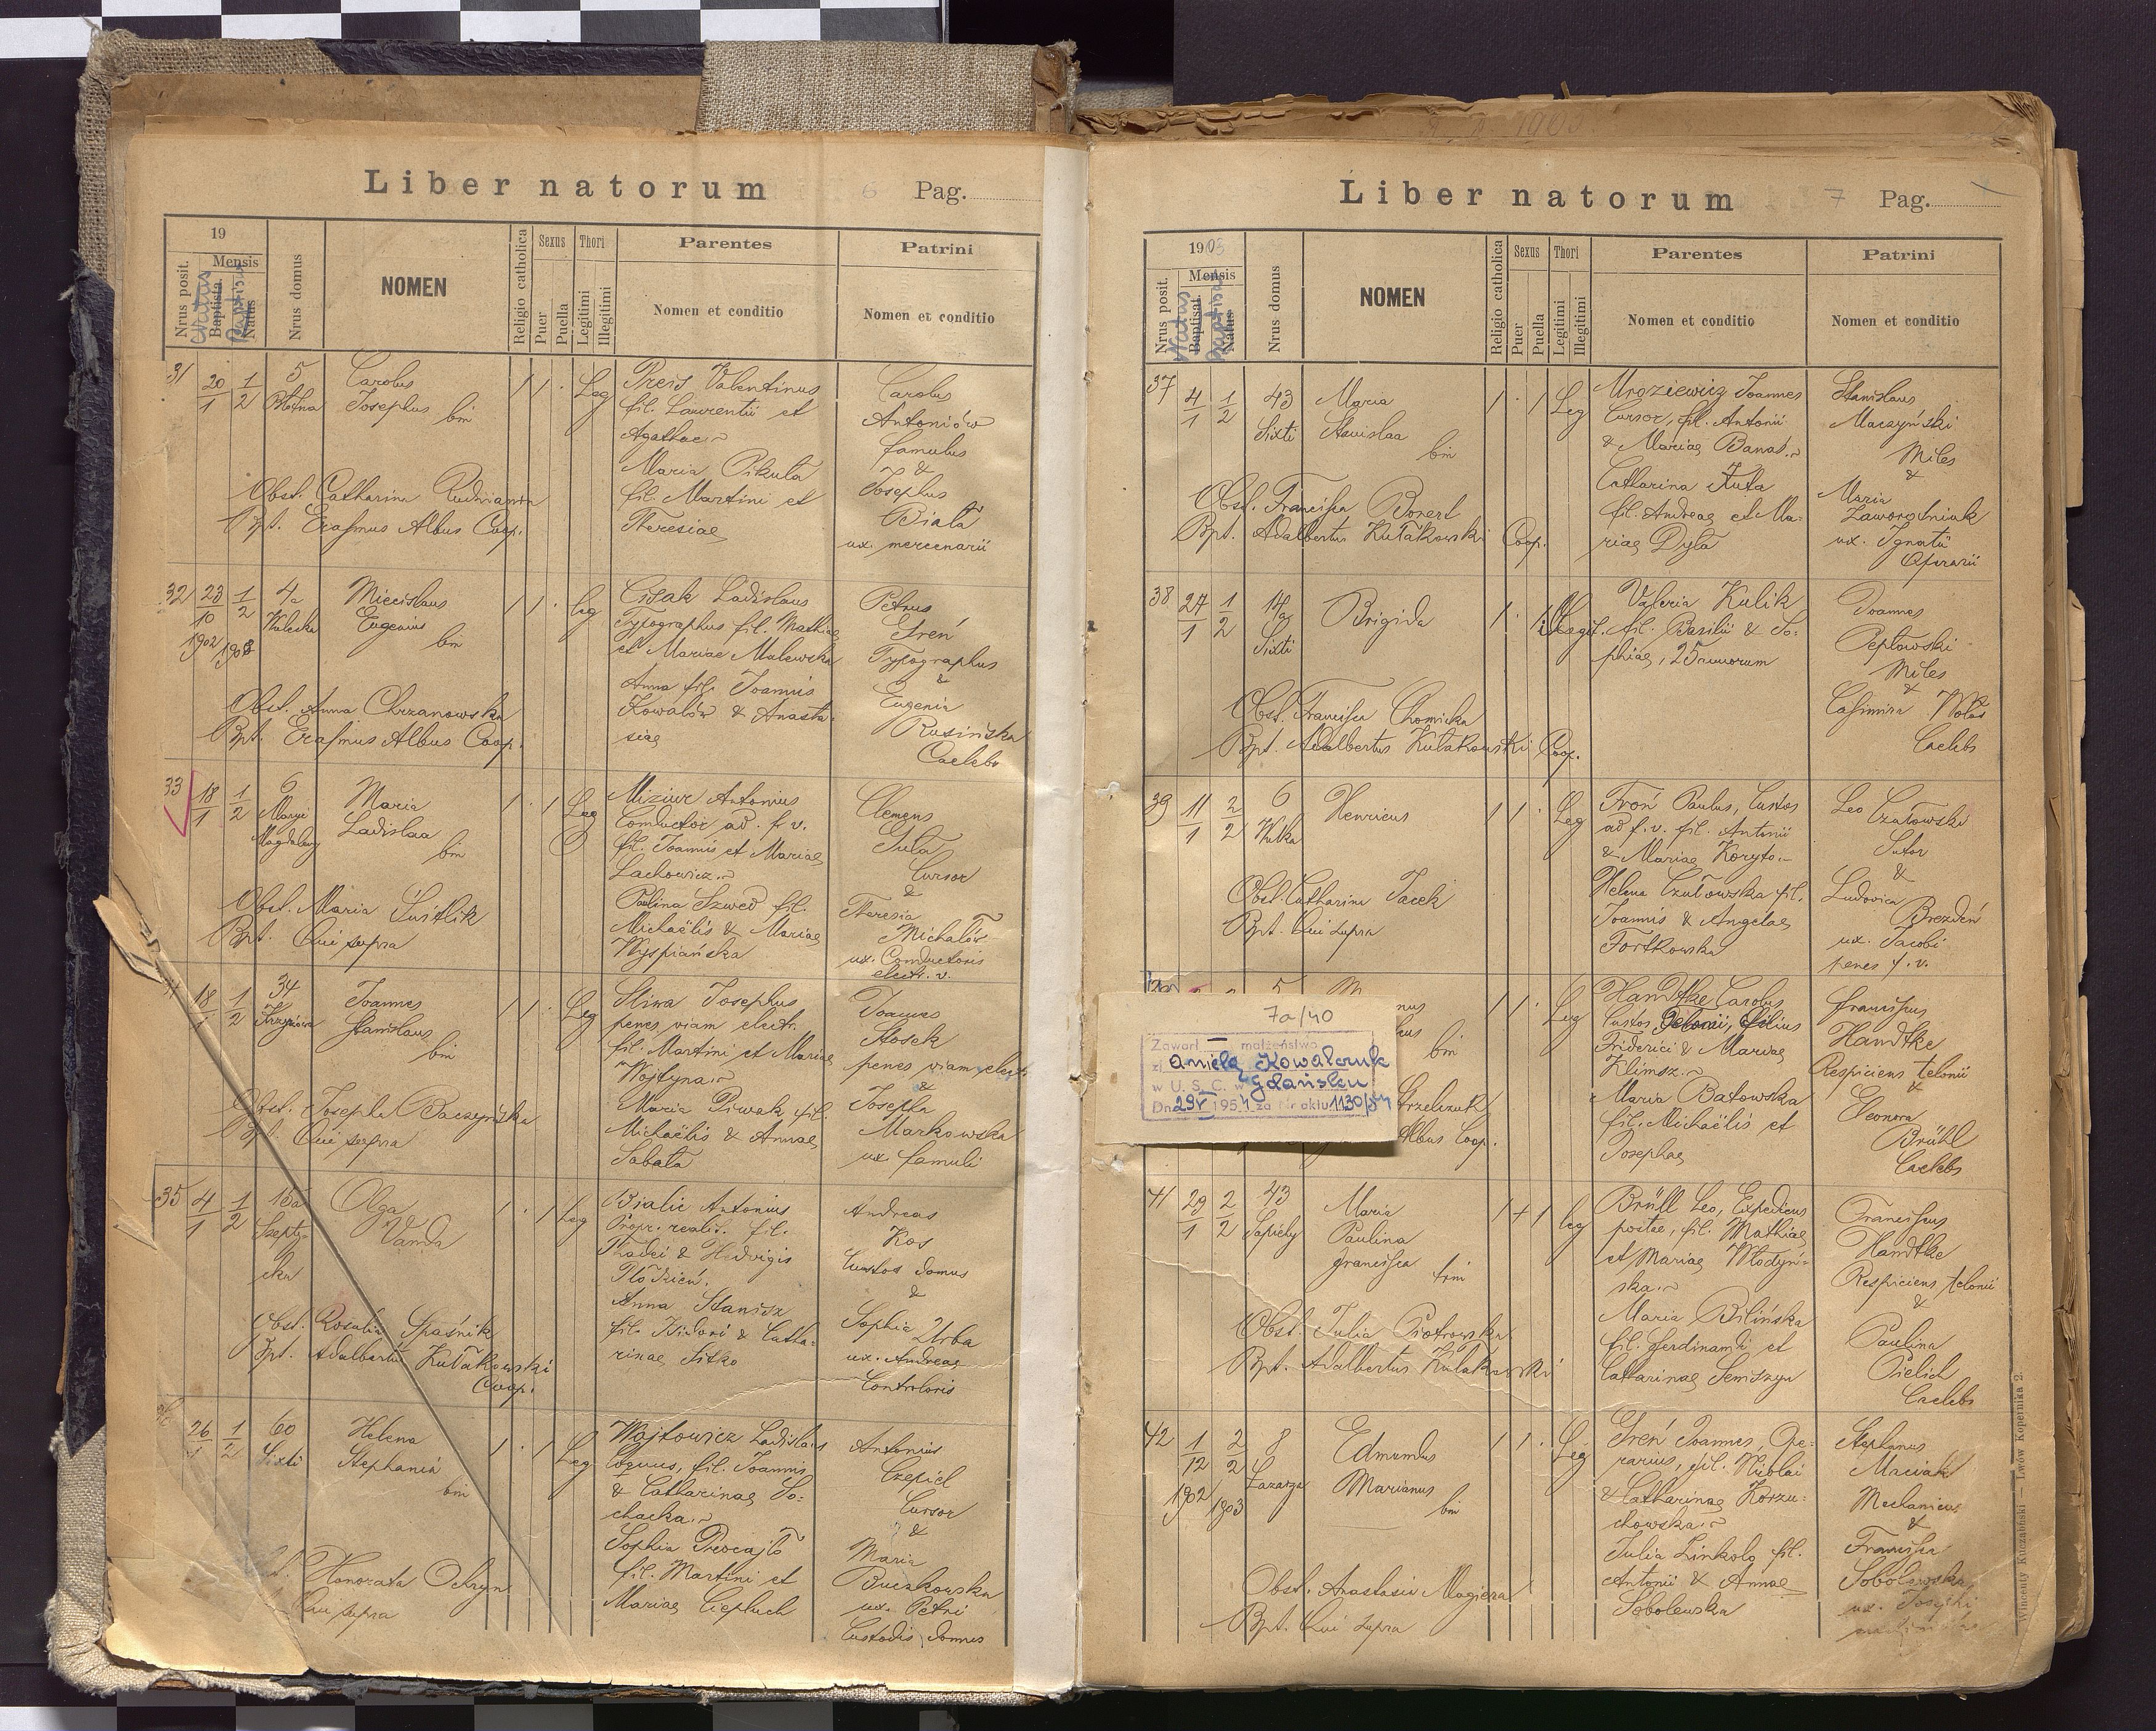 Liber natorum
6
Pag.
19
Nrus posit.
Mensis
Natus
Baptisat.
Baptisatus
Natus
Nrus domus
NOMEN
Religio catholica
Sexus
Puer
Puella
Thori
Legitimi
Illegitimi
Parentes
Nomen et conditio
Patrini
Nomen et conditio
31
20
1
1
2
5
Błotna
Carolus
Josephus bin
1 1 .
Leg
Preis Valentinus
fil. Laurentii et
Agathae
Maria Pikuła
fil. Martini et
Theresiae
Carolus
Antoniów
famulus
&
Josephus
Biała
ux. mercenarii
Obst. Catharina
Bpt. Erasmus Albus Coop.
32
23
10
1902
1
2
1903
4a
Kulecka
Miecislaus
Eugenius
bin
1 1 .
leg
Cisak Ladislaus
Typographus fil. Mathiae
et Mariae Malewska
Anna fil. Joannis
Kowalów & Anasta-
siae
Petrus
Sreń
Typographus
&
Eugenia
Rusińska
Caelebs
Obst. Anna Chrzanowska
Bpt. Erasmus Albus Coop.
33
18
1
1
2
6
Maryi
Magdaleny
Maria
Ladislaa
bin
1 . 1
Leg
Miziur Antonius
Conductor ad. f. v.
fil. Joannis et Mariae
Lachowicz
Paulina Szwed fil.
Michaëlis & Mariae
Wyspiańska
Clemens
Guła
Cursor
&
Theresia
Michalów
ux. Conductoris
electr. v.
Obst. Maria Świtlik
Bpt. Qui supra
18
1
1
2
34
Joannes
Stanislaus
bin
1 1 .
Leg
Sliwa Josephus
penes viam electr.
fil. Martini et Mariae
Wojtyna
Maria Piwak fil.
Michaëlis & Annae
Sabała
Joannes
Stosek
penes viam electr.
&
Josepha
Markowska
ux. famuli
Obst. Josepha Baczyńska
Bpt. Qui supra
35
4
1
1
2
16a
Szepty-
cka
Olga
Vanda
1 . 1
Leg
Bialic Antonius
Propr. realit. fil.
Thadei & Hedvigis
Płodzień.
Anna Stanisz
fil. Isidori & Catha-
rinae Sitko
Andreas
Kos
Custos domus
&
Sophia Urba
ux. Andreae
Controloris
Obst. Rosalia Spaśnik
Bpt. Adalbertus Kułakowski
Coop.
26
1
1
2
60
Sixti
Helena
Stephania
bin
1 . 1
Leg
Wojtowicz Ladislaus
Coquus, fil. Joannis
& Catharinae So-
chacka
Sophia Preocajło
fil. Martini et
Mariae Ciepluch
Antonius
Czepiel
Cursor
&
Maria
Buczkowska
ux. Petri
Custodis domus
Honorata Ochryn
Qui supra
Liber natorum
7
Pag.
1903
Nrus posit.
Mensis
Natus
Baptisat.
Baptisatus
Natus
Nrus domus
NOMEN
Religio catholica
Sexus
Puer
Puella
Thori
Legitimi
Illegitimi
Parentes
Nomen et conditio
Patrini
Nomen et conditio
37
4
1
1
2
43
Sixti
Maria
Stanislaa
bin
1 . 1
Leg
Mroziewicz Joannes
Cursor, fil. Antonii
& Mariae Banas
Catharina Kuta
fil. Andreae et Ma-
riae Dyla
Stanislaus
Maczyński
Miles
&
Maria
Zaworotniuk
ux. Ignatii
Operarii
Obst. Francisca Bonert
Bpt. Adalbertus Kułakowski Coop.
38
27
1
1
2
14a
Sixti
Brigida
1 . 1
Illegit.
Valeria Kulik
fil. Basilii & So-
phiae, 25 annorum
Joannes
Pepłowski
Miles
&
Casimira Wołas
Caelebs
Obst. Francisca Chomicka
Bpt. Adalbertus Kułakowski Coop.
39
11
1
2
2
6
Kulka
Henricus
1 1 .
Leg
Troń Paulus, Custos
ad f. v. fil. Antonii
& Mariae Koryto
Helena Czułowska fil.
Joannis & Angelae
Fortkowska
Leo Czałowski
Sutor
&
Ludovica
Brezdeń
ux. Jacobi
penes f. v.
Obst. Catharina Jacek
Bpt. Qui supra
5
bin
1 1 .
Leg
Handtke Carolus
Custos telonii, filius
Friderici & Mariae
Klimsz.
Maria Batowska
fil. Michaëlis et
Josephae
Franciscus
Handtke
Respiciens telonii
&
Eleonora
Brühl
Caelebs
Strzelczuk
Albus Coop.
7a/40
Zawarł małżeństwo
z Anielą Kowalczuk
w U. S. C. w Gdańsku
Dn. 29 V 1954 za Nr aktu 1130/54
41
29
1
2
2
43
Sapiehy
Maria
Paulina
Francisca
trin
1 + 1
leg
Brüll Leo, Expediens
postae, fil. Mathiae
et Mariae Włodyń-
ska
Maria Bilińska
fil. Ferdinandi et
Catharinae Semiszyn
Franciscus
Handtke
Respiciens telonii
&
Paulina
Pielich
Caelebs
Obst. Julia Piotrowska
Bpt. Adalbertus Kułakowski
42
1
12
1902
2
2
1903
8
Łazarza
Edmundus
Marianus
bin
1 1 .
Leg
Sreń Joannes, Ope-
rarius, fil. Nicolai
& Catharinae Korzu-
chowska
Julia Zinkolo fil.
Antonii & Annae
Sobolewska
Stephanus
Maciak
Mechanicus
&
Francisca
Sobolewska
ux. Josephi
Obst. Anastasia Magiera
Bpt. Qui supra
Wincenty Kuczabiński — Lwów Kopernika 2.